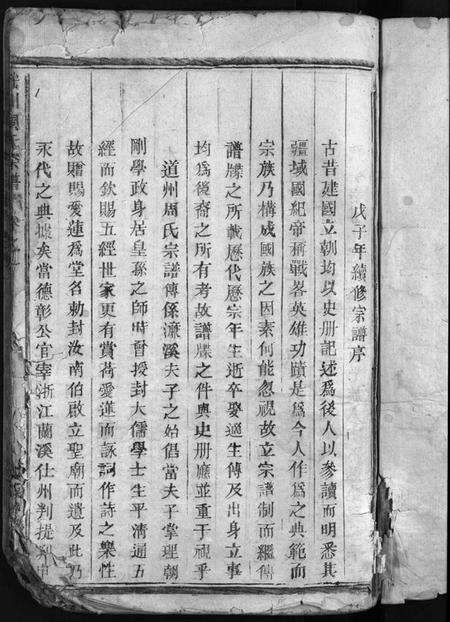 戊子年續修宗譜序
古昔建國立朝均以史册記述爲後人以參讀而明悉其
疆域國紀帝稱戰畧英雄功蹟是爲今人作爲之典範而
宗族乃構成國族之因素何能忽視故立宗譜制而繼傳
譜牒之所載歷代歷宗年生逝卒娶適生傳及出身立事
均爲後裔之所有考故譜牒之件與史册應並重于視乎
道州周氏宗譜傳係濂溪夫子之始倡當夫子掌理朝
剛學政身居皇孫之師時曾授封大儒學士生平清通五
經而欽賜五經世家更有賞荷愛蓮而詠詞作詩之樂性
故贈賜愛蓮爲堂名勅封汝南伯啟立聖廟而遺及此乃
永代之典據矣當德彰公官宰浙江蘭溪仕州判提